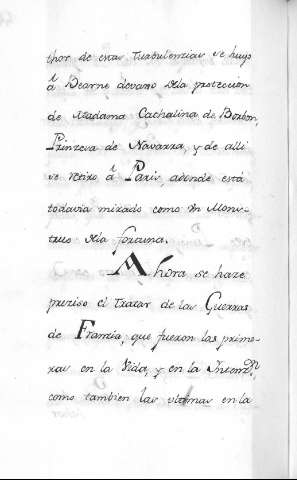 thor de estas turbulencias se huyó
á Bearne devaxo dela protección
de Madama Cathalina de Borbon,
Prinzesa de Navarra, y de alli
se retiró á Paris, adonde está
todavia mirado como un Mons-
truo dela fortuna.
Ahora se haze
preziso el tratar de las Guerras
de Franzia, que fueron las prime-
ras en la Vida, y en la
como tambien las ultimas en la